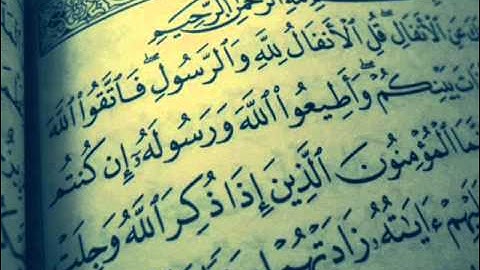 الله الرَّحْمَٰنِ الرَّحِيمِ
عَنِ الْأَنفَالِ ۖ قُلِ الْأَنفَالُ لِلَّهِ وَالرَّسُولِ ۖ فَاتَّقُوا اللَّهَ
بَيْنِكُمْ ۖ وَأَطِيعُوا اللَّهَ وَرَسُولَهُ إِن كُنتُم
الْمُؤْمِنُونَ الَّذِينَ إِذَا ذُكِرَ اللَّهُ وَجِلَتْ
ءَايَٰتُهُ زَادَتْهُمْ